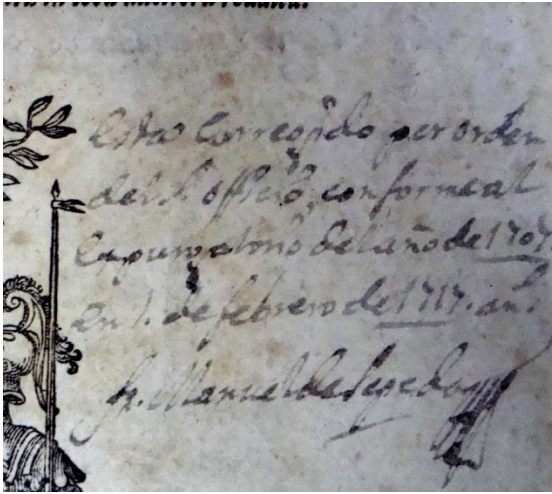 esta corregido por orden
del S. officio, conforme al
expurgatorio del año de 1707
en 1. de febrero de 1717. an.
fr. Manuel de